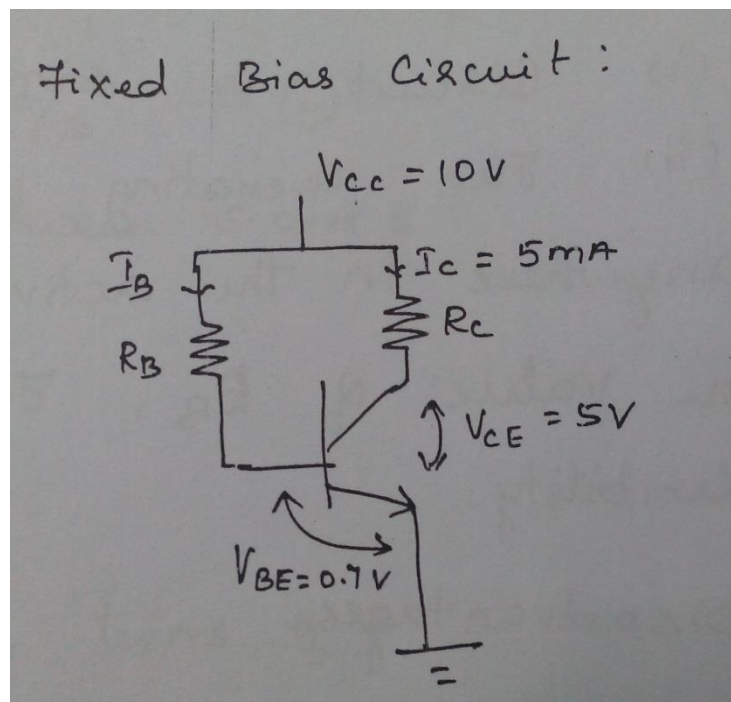 Fixed Bias Circuit :
VCC = 10V
IB
IC = 5mA
RB
RC
VCE = 5V
VBE = 0.7V